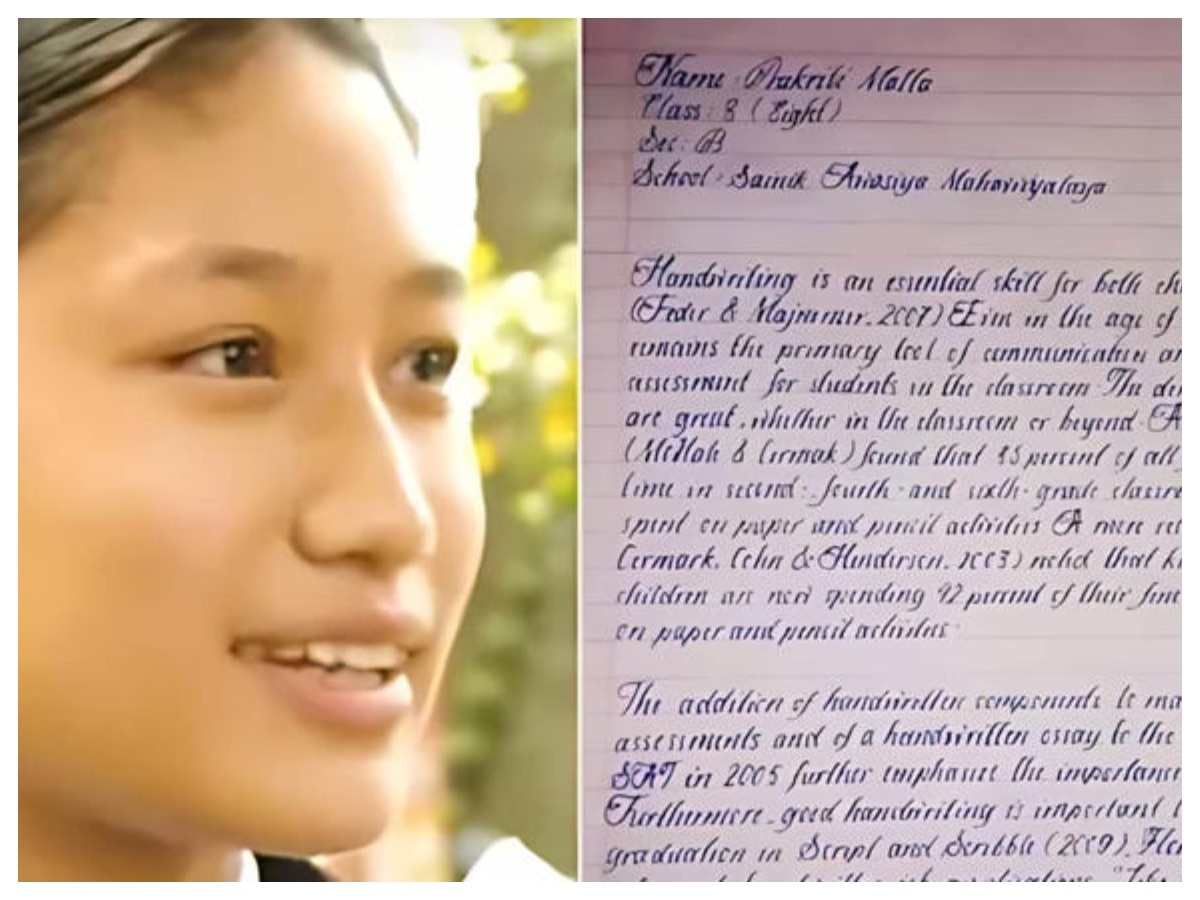 Name : Prakriti Malla
Class : 8 (Eight)
Sec : B
School : Sainik Awasiya Mahavidyalaya
Handwriting is an essential skill for both ch
(Feder & Majnemer, 2007) Even in the age of
remains the primary tool of communication an
assessment for students in the classroom. The de
are great, whether in the classroom or beyond. A
(McHale & Cermak) found that 85 percent of all
time in second-, fourth- and sixth- grade classr
spent on paper and pencil activities. A more re
Cermark, Cohn & Henderson, 2003) noted that ki
children are now spending 42 percent of their fine
on paper and pencil activities.
The addition of handwritten components to ma
assessments and of a handwritten essay to the
SAT in 2005 further emphasize the importance
Furthermore, good handwriting is important t
graduation in Script and Scribble (2009), Flor